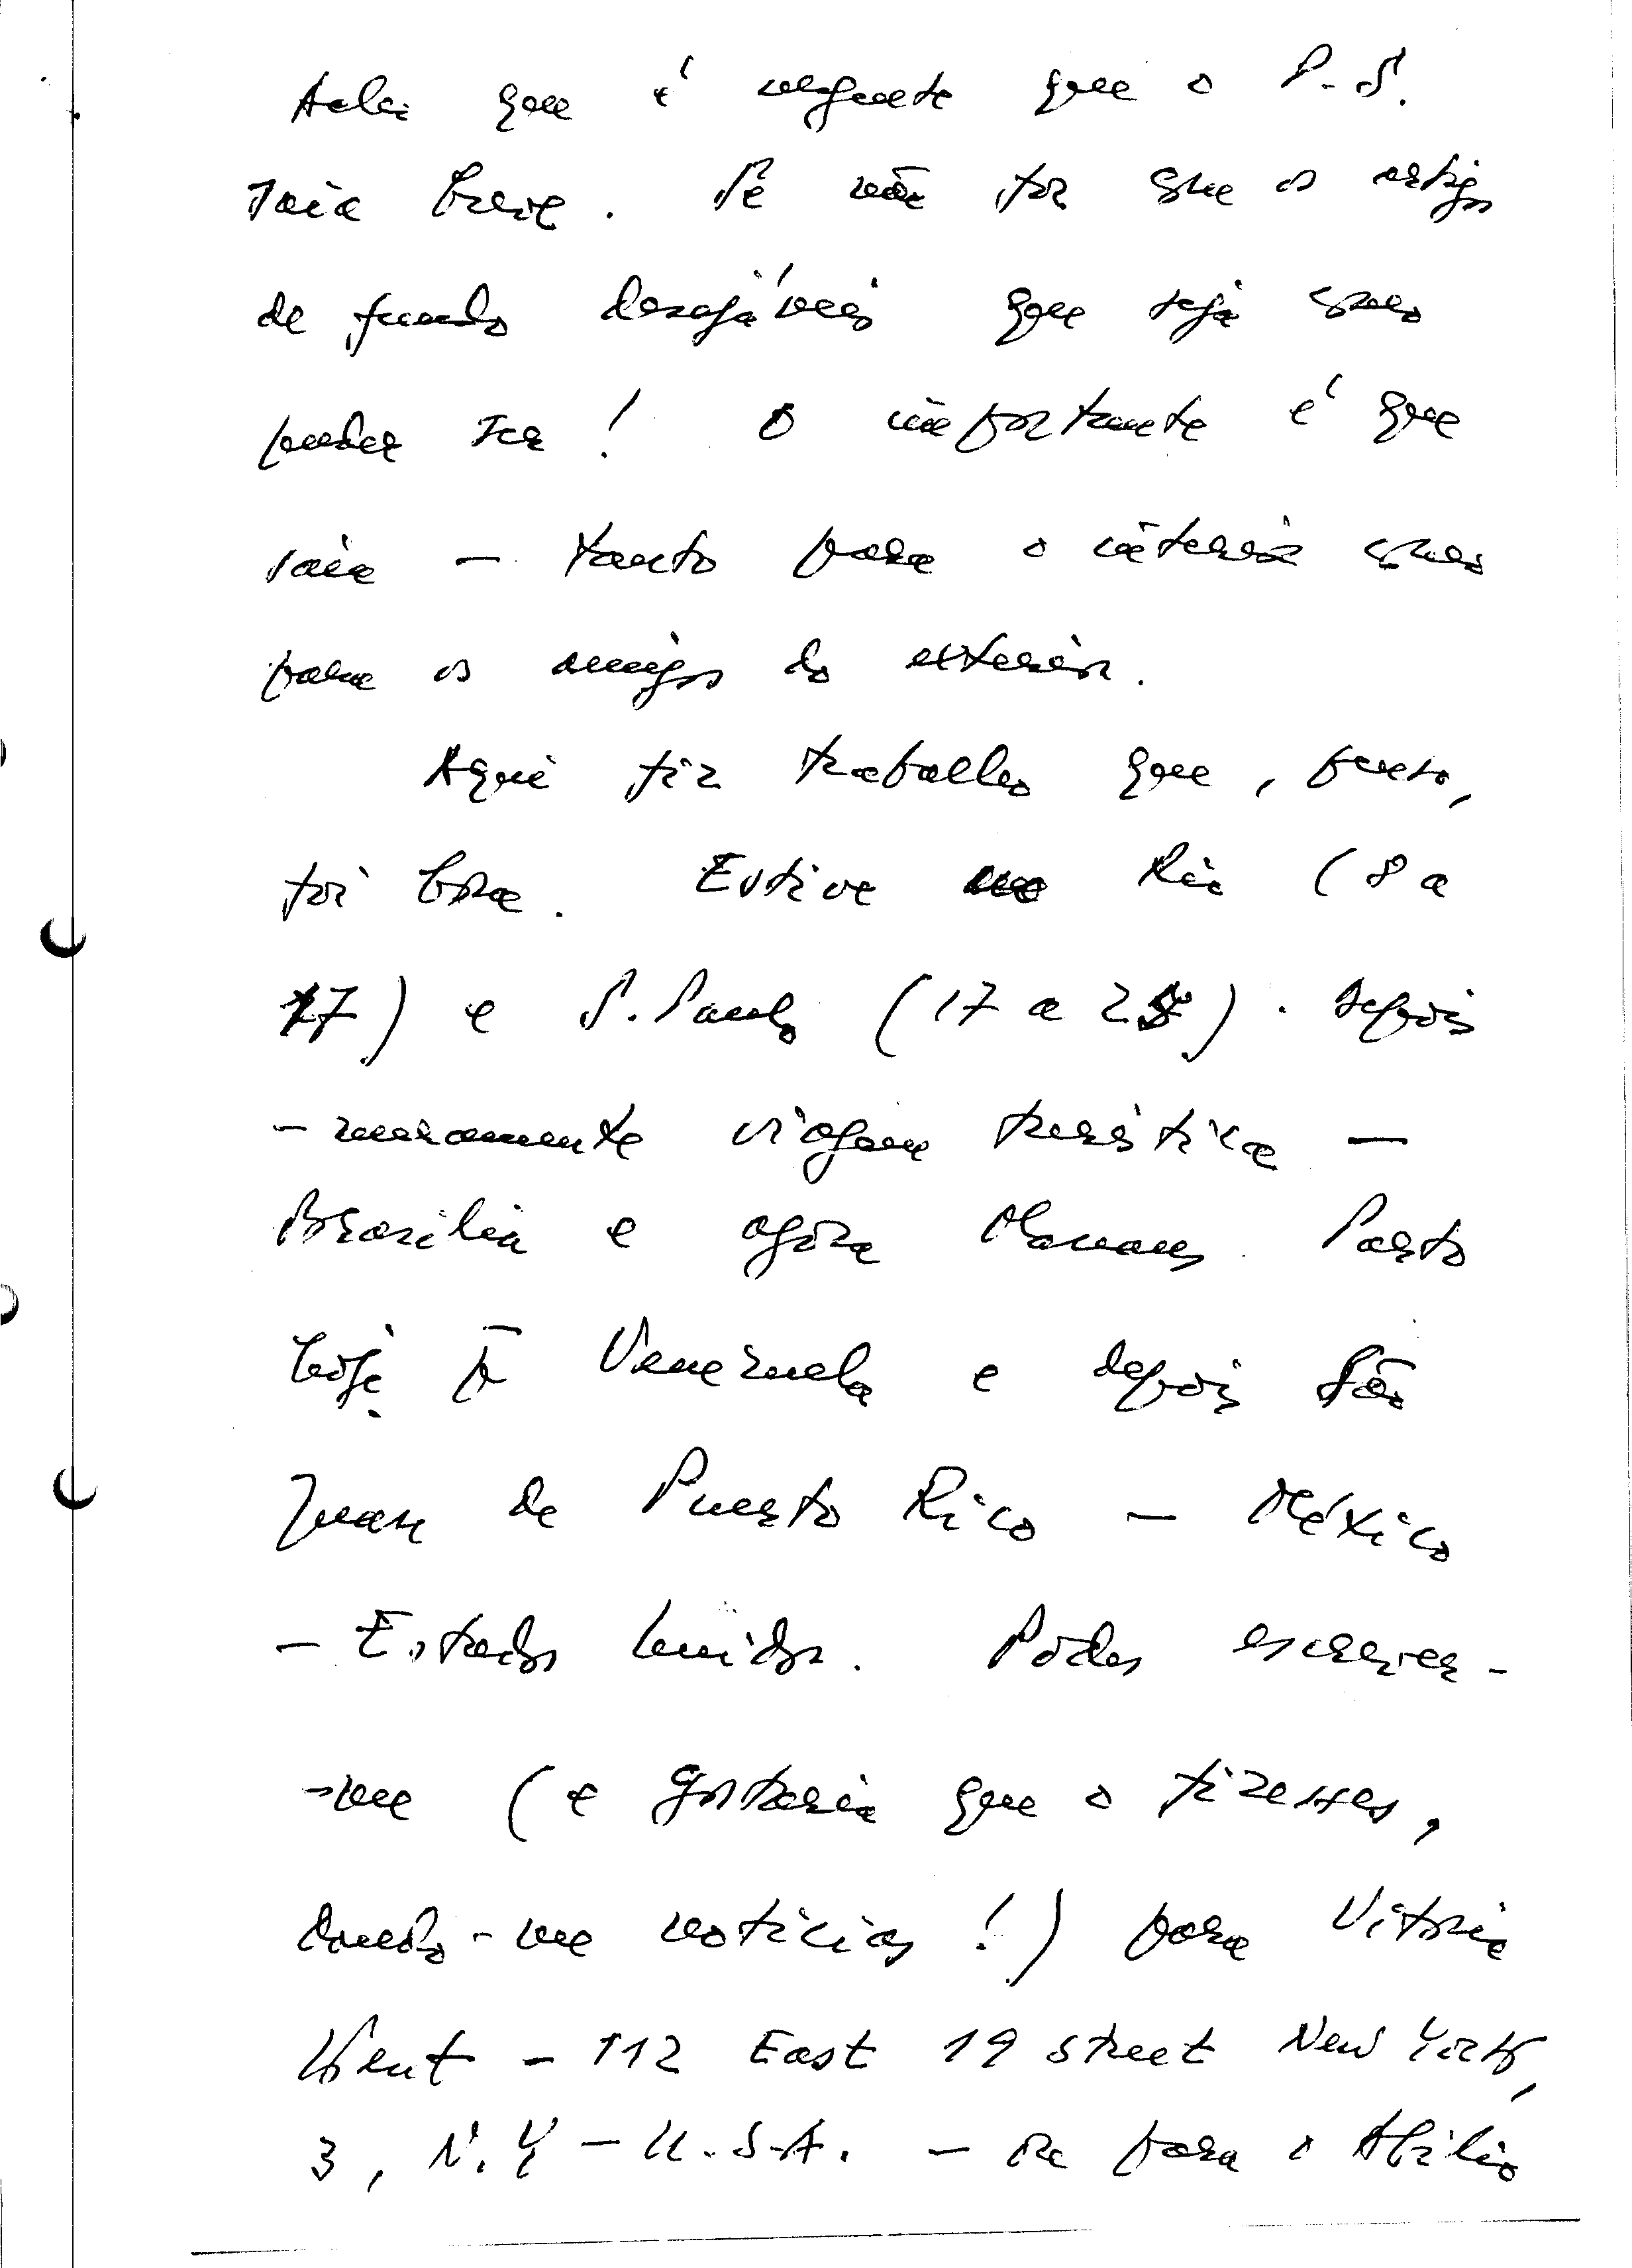 Achei que é urgente que o P.S.
saia breve. Se não for com os artigos
de fundo desejáveis que seja como
puder ser! O importante é que
saia - tanto para o interior como
para os amigos do exterior.
Aqui fiz trabalho que, penso,
foi bom. Estive no Rio (8 a
17) e S. Paulo (17 a 25). depois
- meramente viagem turística -
Brasília e agora Manaus. Parto
hoje p. Venezuela e depois São
Juan de Puerto Rico - México
- Estados Unidos. Podes escrever-
-me (e gostaria que o fizesses,
dando-me notícias!) para Vitória
Kent - 112 East 19 street New York,
3, N.Y - U.S.A. - ou para o Abílio